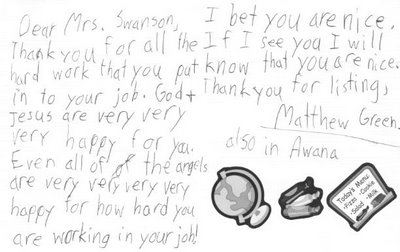 Dear Mrs. Swanson,
Thank you for all the
hard work that you put
in to your job. God +
Jesus are very very
very happy for you.
Even all of of the angels
are very very very very
happy for how hard you
are working in your job!
I bet you are nice.
If I see you I will
know that you are nice.
Thank you for listing,
Matthew Green
also in Awana
Today's Menu
-Pizza -Cookie
-Salad -Milk